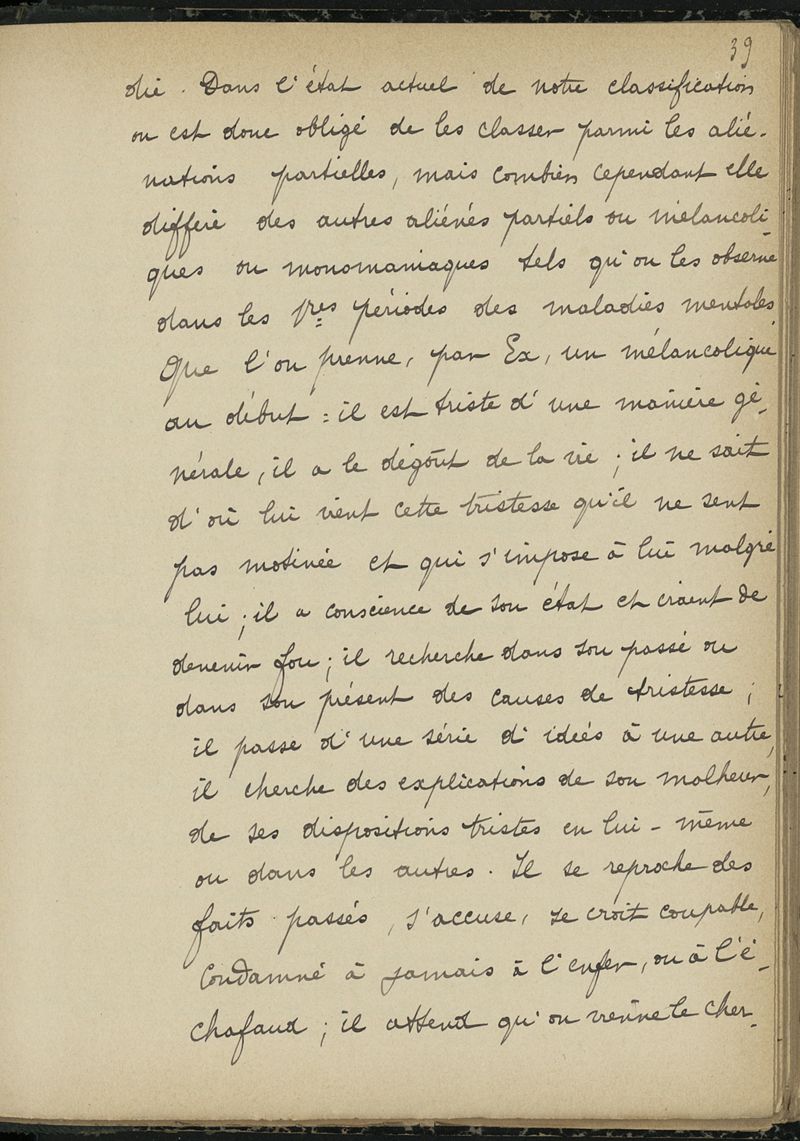 39
die. Dans l'état actuel de notre classification
on est donc obligé de les classer parmi les alié-
nations partielles, mais combien cependant elle
diffère des autres aliénés partiels ou mélancoli-
ques ou monomaniaques tels qu'on les observe
dans les 1res périodes des maladies mentales.
Que l'on prenne, par Ex, un mélancolique
au début : il est triste d'une manière gé-
nérale, il a le dégoût de la vie ; il ne sait
d'où lui vient cette tristesse qu'il ne sent
pas motivée et qui s'impose à lui malgré
lui ; il a conscience de son état et craint de
devenir fou ; il recherche dans son passé ou
dans son présent des causes de tristesse ;
il passe d'une série d'idées à une autre,
il cherche des explications de son malheur,
de ses dispositions tristes en lui-même
ou dans les autres. Il se reproche des
faits passés, s'accuse, se croit coupable,
Condamné à jamais à l'enfer, ou à l'é-
chafaud ; il attend qu'on vienne le cher-